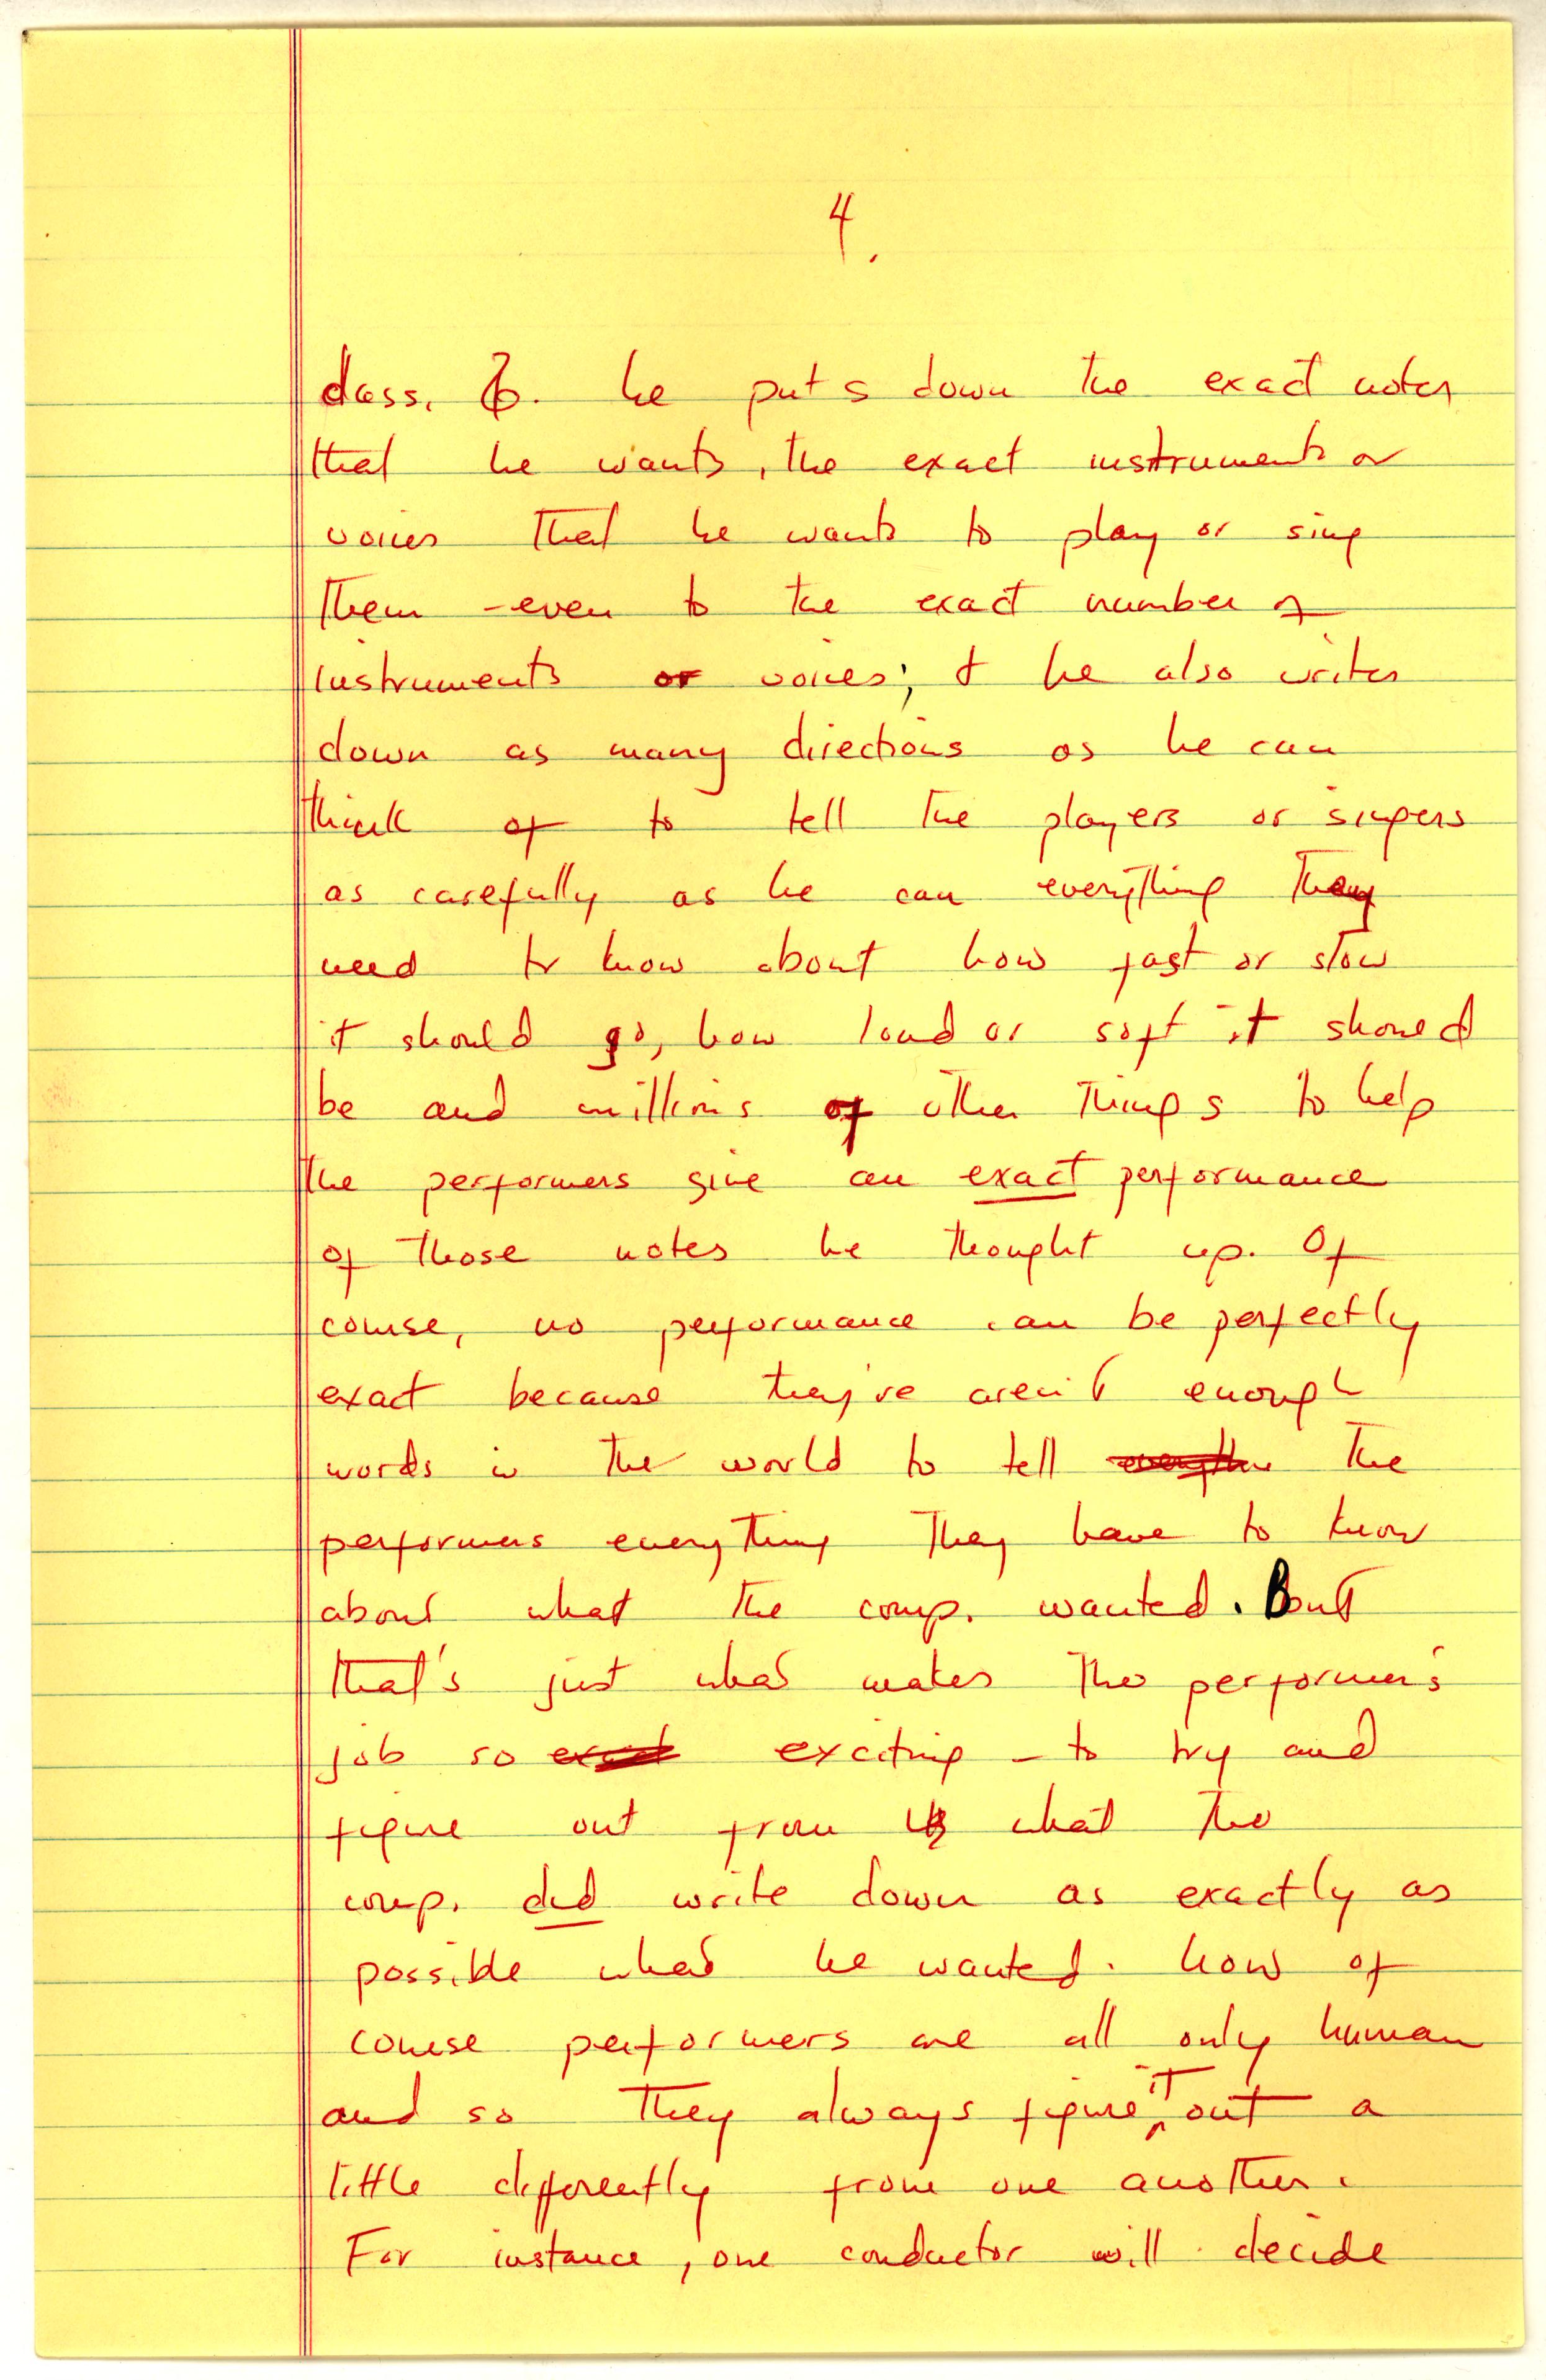 4.
class. he puts down the exact notes
that he wants, the exact instruments or
voices that he wants to play or sing
them - even to the exact number of
instruments or voices; & he also writes
down as many directions as he can
think of to tell the players or singers
as carefully as he can everything they
need to know about how fast or slow
it should go, how loud or soft it should
be and millions of other things to help
the performers give an exact performance
of those notes he thought up. Of
course, no performance can be perfectly
exact because they're aren't enough
words in the world to tell the
performers everything they have to know
about what the comp. wanted. But
that's just what makes the performer's
job so exciting - to try and
figure out from what the
comp. did write down as exactly as
possible what he wanted. Now of
course performers are all only human
and so they always figure it out a
little differently from one another.
For instance, one conductor will decide